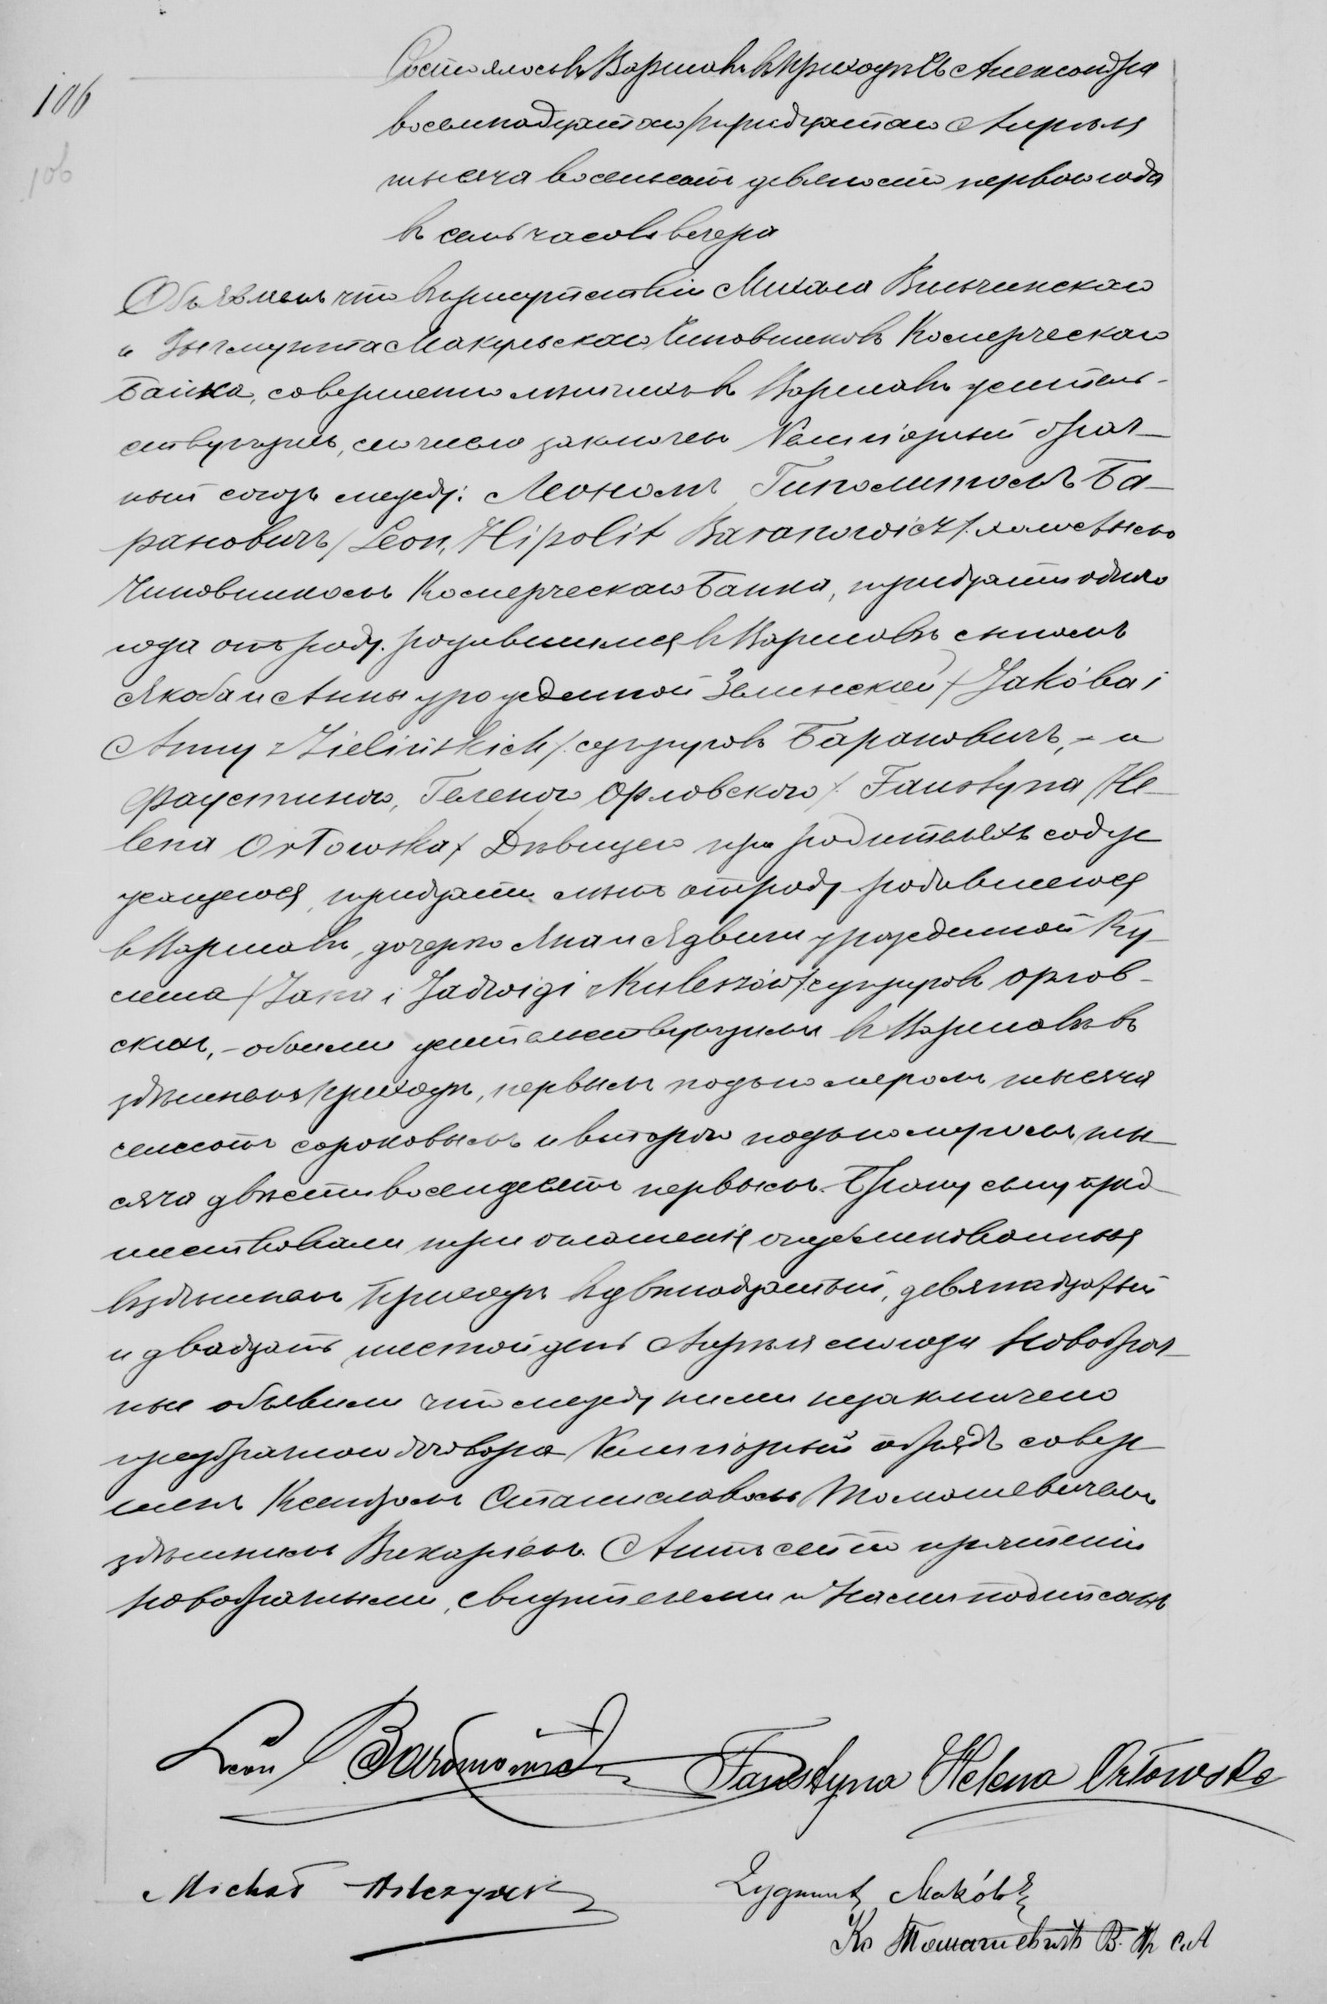 106
106
Состоялось въ Варшавѣ въ приходѣ Св. Александра
восемнадцатаго/тридцатаго Апрѣля
тысяча восемьсотъ девяносто перваго года
въ семь часовъ вечера
Объявляемъ что въ присутствіи Михала Вильчинскаго
и Зыгмунта Макульскаго Чиновниковъ Комерческаго
Банка, совершеннолѣтнихъ въ Варшавѣ житель-
ствующихъ, сего числа заключенъ религіозный брач-
ный союзъ между: Леономъ Гиполитомъ Ба-
рановичъ /Leon, Hipolit Baranowicz/ холостымъ
Чиновникомъ Комерческаго Банка, тридцати одного
года отъ роду, родившимся въ Варшавѣ сыномъ
Якоба и Анны урожденной Зелинской /Jakóba i
Anny z Zielińskich/ супруговъ Барановичъ, - и
Фаустиною, Геленою Орловскою / Faustyna He-
lena Orłowska/ Дѣвицею при родителяхъ содер
жащеюся, тридцати лѣтъ отъ роду родившеюся
въ Варшавѣ, дочерью Яна и Ядвиги урожденной Ку-
леша /Jana i Jadwigi Kuleszów/ супруговъ Орлов-
скихъ, - обоими жительствующими въ Варшавѣ въ
здѣшнемъ приходѣ, первымъ подъ номеромъ тысяча
семьсотъ сороковымъ и второю подъ номеромъ ты-
сяча двѣсти восемдесятъ первымъ. Браку сему пред-
шествовали три оглашенія опубликованныя
въ здѣшнемъ приходѣ въ двѣнадцатый, девятнадцатый
и двадцать шестой день Апрѣля сего года Новобрач-
ные объявили что между ними не заключено
предбрачнаго договора Религіозный обрядъ совер-
шенъ Ксендзомъ Станиславомъ Томашевичемъ
здѣшнимъ Викаріемъ. Актъ сей по прочтеніи
новобрачными, свидѣтелями и Нами подписанъ
Leon Baranowicz Faustyna Helena Orłowska
Michał Wilczyński Zygmunt
Кс Томашевичъ В. Пр С.А